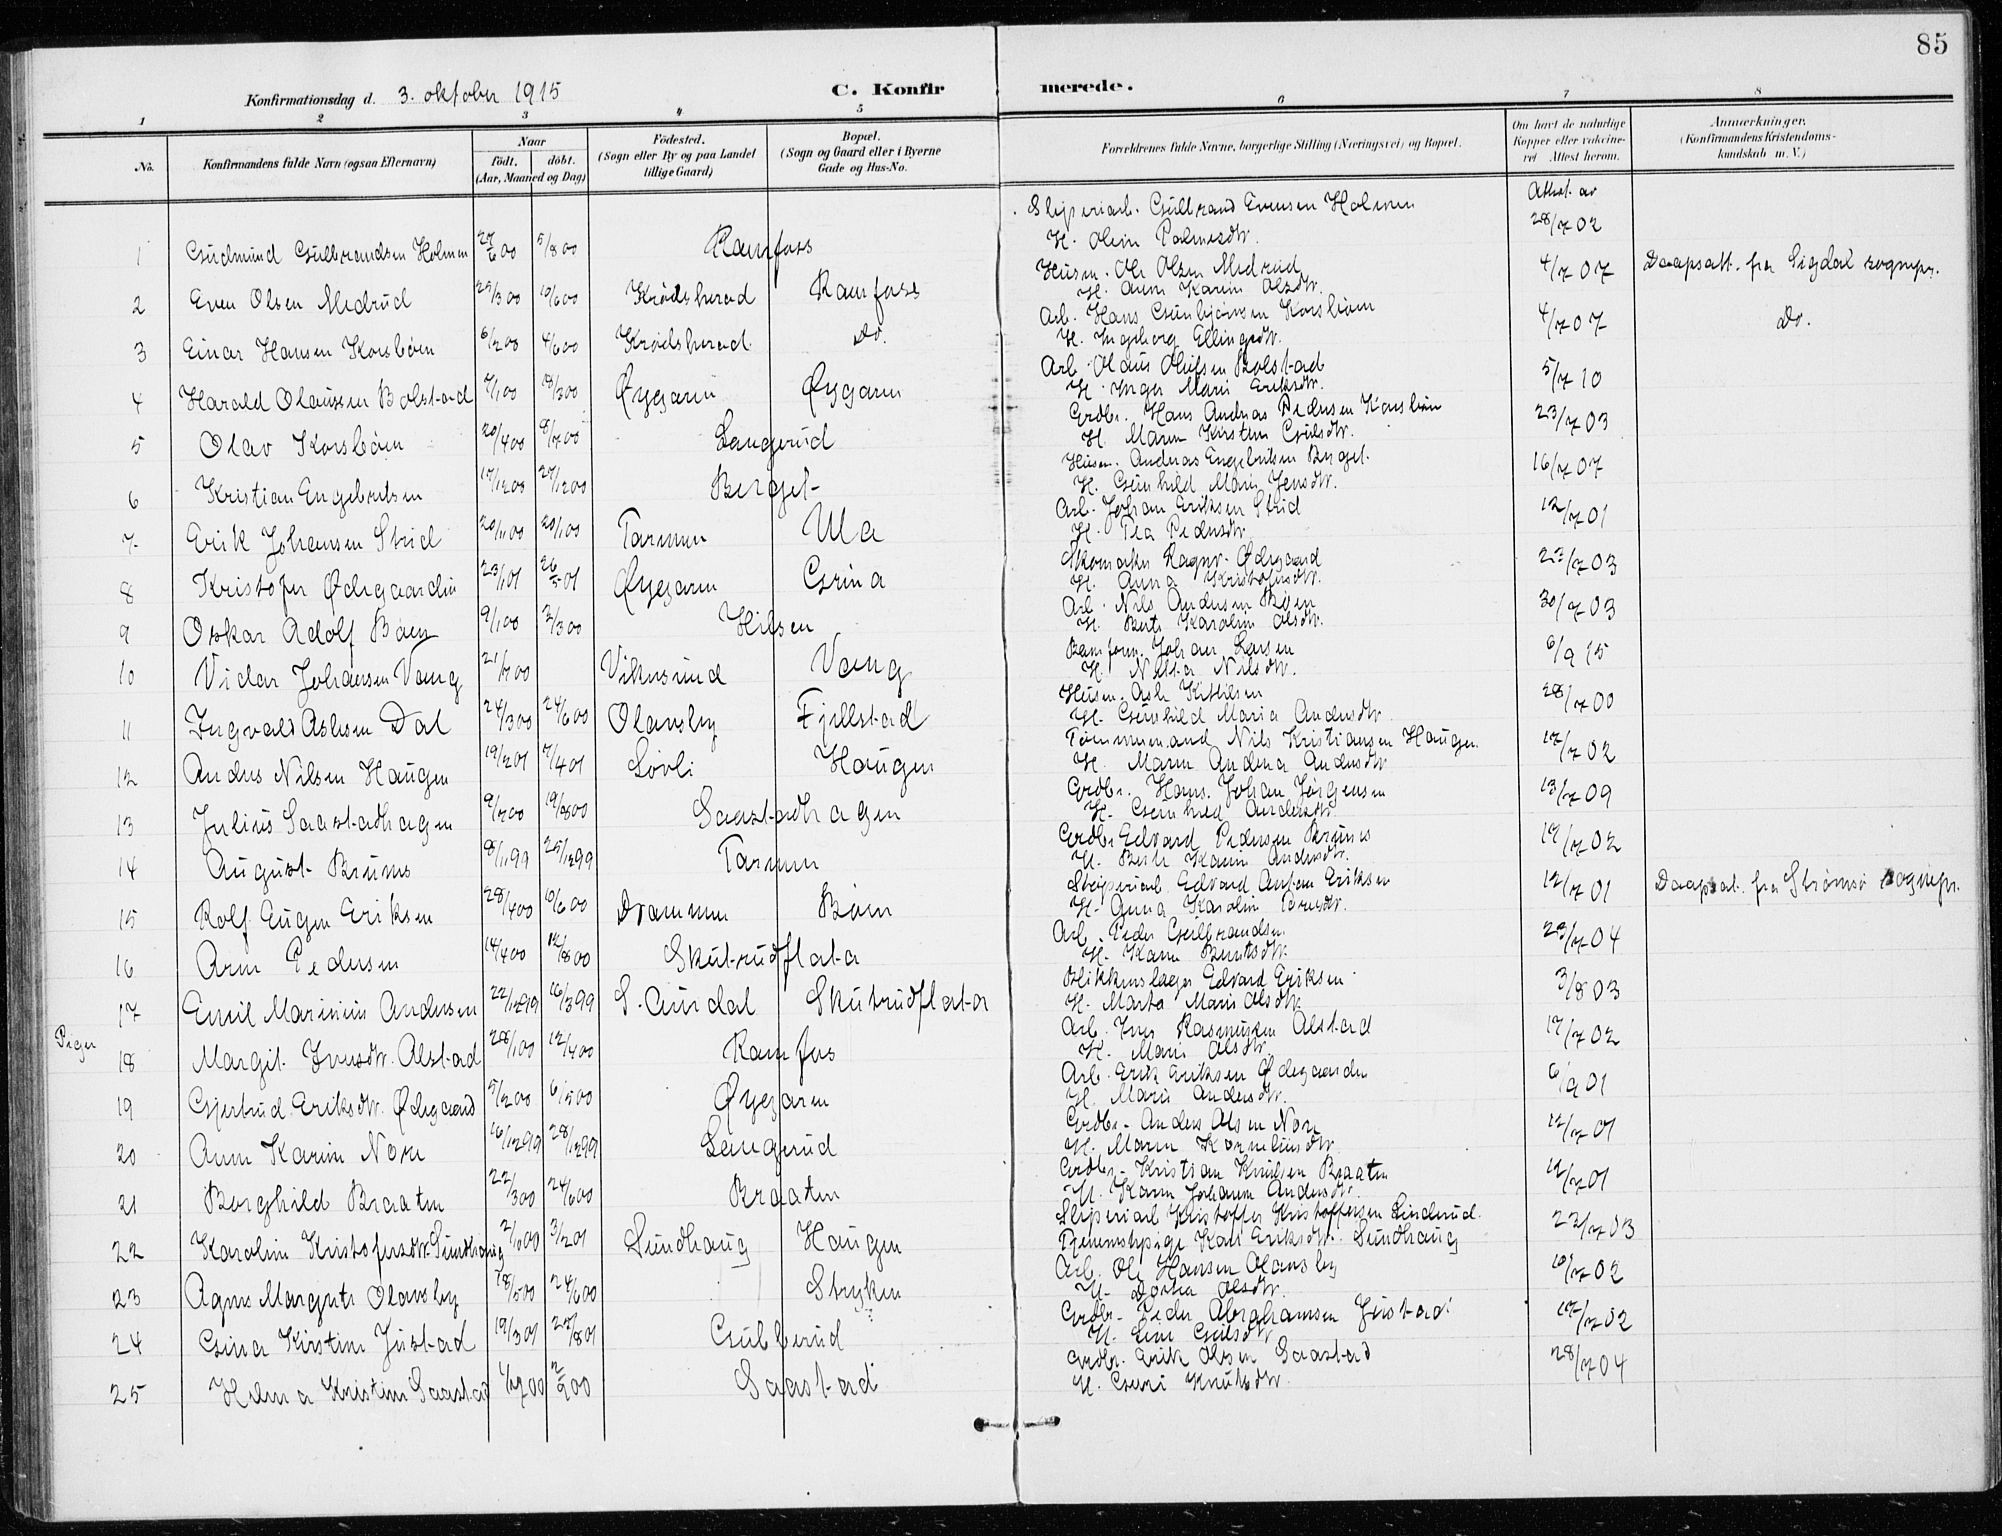 85
Konfirmationsdag d. 3. oktober 1915
C. Konfirmerede.
1 2 3 4 5 6 7 8
No.
Konfirmandens fulde Navn (ogsaa Efternavn)
Naar
født. døbt.
(Aar, Maaned og Dag)
Fødested.
(Sogn eller By og paa Landet
tillige Gaard)
Bopæl.
(Sogn og Gaard eller i Byerne
Gade og Hus-No.
Forældrenes fulde Navne, borgerlige Stilling (Næringsvei) og Bopæl.
Om havt de naturlige
Kopper eller vakcine-
ret Attest herom.
Anmærkninger.
(Konfirmandens Kristendoms-
kundskab m. V.)
Attest av
1 Gudmund Gulbrandsen Holmen 27/6 00 5/8 00 Ramfoss Sliperiarb. Gulbrand Evensen Holmen 28/7 02
H. Oline Palmesdtr.
2 Even Olsen Medrud 29/3 00 10/6 00 Krødsherad Ramfoss Husm. Ole Olsen Medrud 4/7 07 Daapsatt. fra Sigdal sognepr.
H. Anne Karine Olsdtr.
3 Einar Hansen Korsbøen 6/2 00 4/6 00 Krødsherad Do. Arb. Hans Gunbjørnsen Korsbøen 4/7 07 Do.
H. Ingeborg Ellingsdtr.
4 Harald Olausen Bolstad 7/1 00 18/3 00 Øygarn Øygarn Arb. Olaus Olufsen Bolstad 5/7 10
H. Inger Marie Eriksdtr.
5 Olav Korsbøen 20/4 00 8/7 00 Langerud Grdbr. Hans Andreas Pedersen Korsbøen 23/7 03
H. Maren Kirstine Gulsdtr.
6 Kristian Engebretsen 17/12 00 27/12 00 Berget Husm. Andreas Engebretsen Berget 16/7 07
H. Gunhild Marie Jensdtr.
7 Erik Johansen Strid 20/11 00 20/1 00 Tarmen Ula Arb. Johan Eriksen Strid 12/7 01
H. Pea Pedersdtr.
8 Kristofer Ødegaarden 23/1 01 26/5 01 Øygarn Grina Skomaker Ragnv. Ødegaard 23/7 03
H. Anna Kristofersdtr.
9 Oskar Adolf Bøen 9/1 00 3/3 00 Hilsen Arb. Nils Andersen Bøen 30/7 03
H. Berte Karoline Olsdtr.
10 Vidar Johansen Vang 21/7 00 Vikersund Vang Johan Larsen 6/9 15
H. Netta Nilsdtr.
11 Ingvald Aslesen Dal 24/3 00 24/6 00 Olavsby Fjellstad Husm. Asle Kittilsen 28/7 00
H. Gunhild Maria Andersdtr.
12 Anders Nilsen Haugen 19/2 01 7/4 01 Løvli Haugen Tømmermand Nils Kristiansen Haugen 17/7 02
H. Maren Andrea Andersdtr.
13 Julius Saastadhagen 9/7 00 19/8 00 Saastadhagen Grdbr. Hans Johan Jørgensen 13/7 09
H. Gunhild Andersdtr.
14 August Brunes 8/11 99 25/12 99 Tarmen Grdbr. Edvard Pedersen Brunes 17/7 02
H. Berte Karine Andersdtr.
15 Rolf Eugen Eriksen 28/4 00 10/6 00 Drammen Bøen Sliperiarb. Edvard Anton Eriksen 12/7 01 Daapsat. fra Strømsø sognepr.
H. Anna Karoline
16 Arne Pedersen 14/4 00 12/8 00 Skutrudflata Arb. Peder Gulbrandsen 23/7 04
H. Karen Berntsdtr.
17 Emil Marinius Andersen 22/12 99 16/3 99 S. Aurdal Skutrudflata Blikkenslager Edvard Eriksen 3/8 03
H. Marta Marie Olsdtr.
Piger
18 Margit Iversdtr. Alstad 28/1 00 12/4 00 Ramfos Arb. Iver Rasmussen Alstad 17/7 02
H. Marie Olsdtr.
19 Gjertrud Eriksdtr. Ødegaard 5/2 00 6/5 00 Øygaren Arb. Erik Eriksen Ødegaarden 6/9 01
H. Marie Andersdtr.
20 Anne Karine Nore 16/12 99 28/12 99 Langerud Grdbr. Anders Olsen Nore 12/7 01
H. Maren Korneliusdtr.
21 Borghild Braaten 22/3 00 24/6 00 Braaten Grdbr. Kristian Knutsen Braaten 12/7 01
H. Karen Johanne Andersdtr.
22 Karoline Kristofersdtr. Sundhaug 2/10 00 3/2 01 Sundhaug Haugen Sliperiarb. Kristoffer Kristoffersen Linderud. 22/7 03
Tjenestepige Kari Eriksdtr. Sundhaug
23 Agnes Margrete Olavsby 18/5 00 24/6 00 Stryken Arb. Ole Hansen Olavsby 10/7 02
H. Dorte Olsdtr.
24 Gina Kirstine Justad 19/3 01 27/8 01 Gubberud Grdbr. Peder Abrahamsen Justad 17/7 02
H. Line Gulsdtr.
25 Helena Kristine Saastad 9/2 00 Saastad Grdbr. Erik Olsen Saastad 28/7 04
H. Guri Knutsdtr.